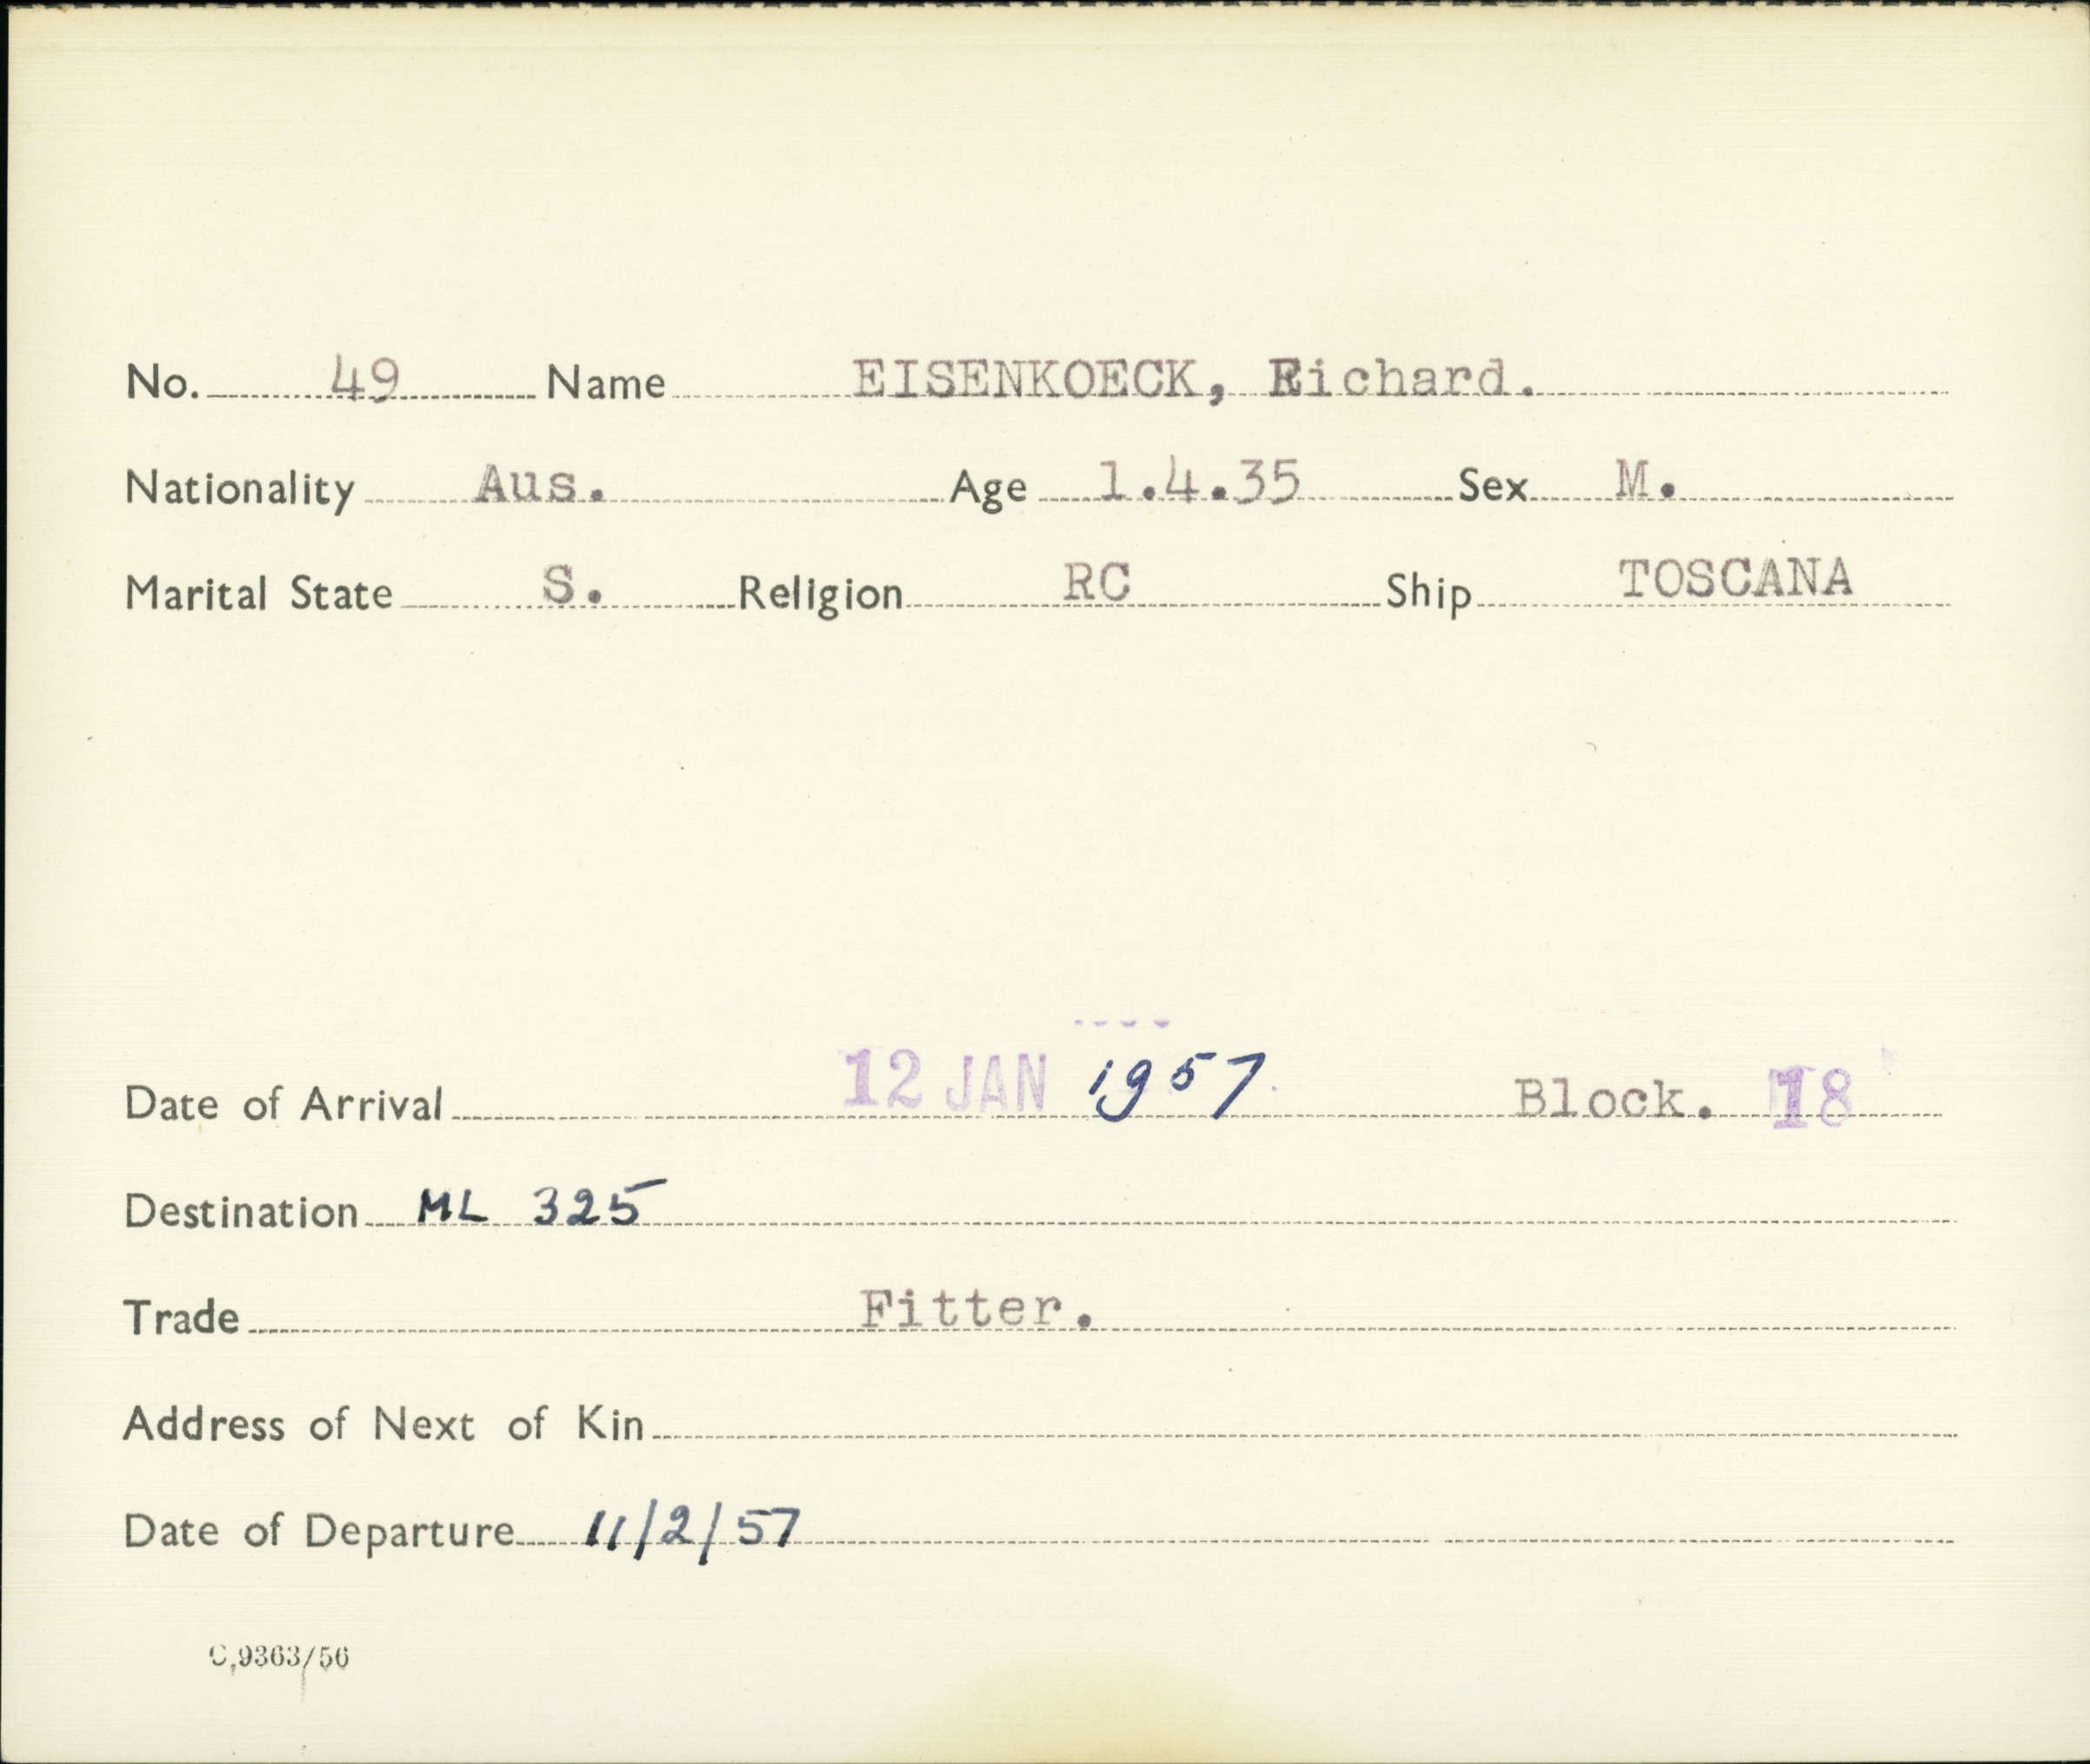 No. 49 Name EISENKOECK, Richard.
Nationality Aus. Age 1.4.35 Sex M.
Marital State S. Religion RC Ship TOSCANA
Date of Arrival 12 JAN 1957 Block. 18
Destination ML 325
Trade Fitter.
Address of Next of Kin
Date of Departure 11/2/57
C.9363/56